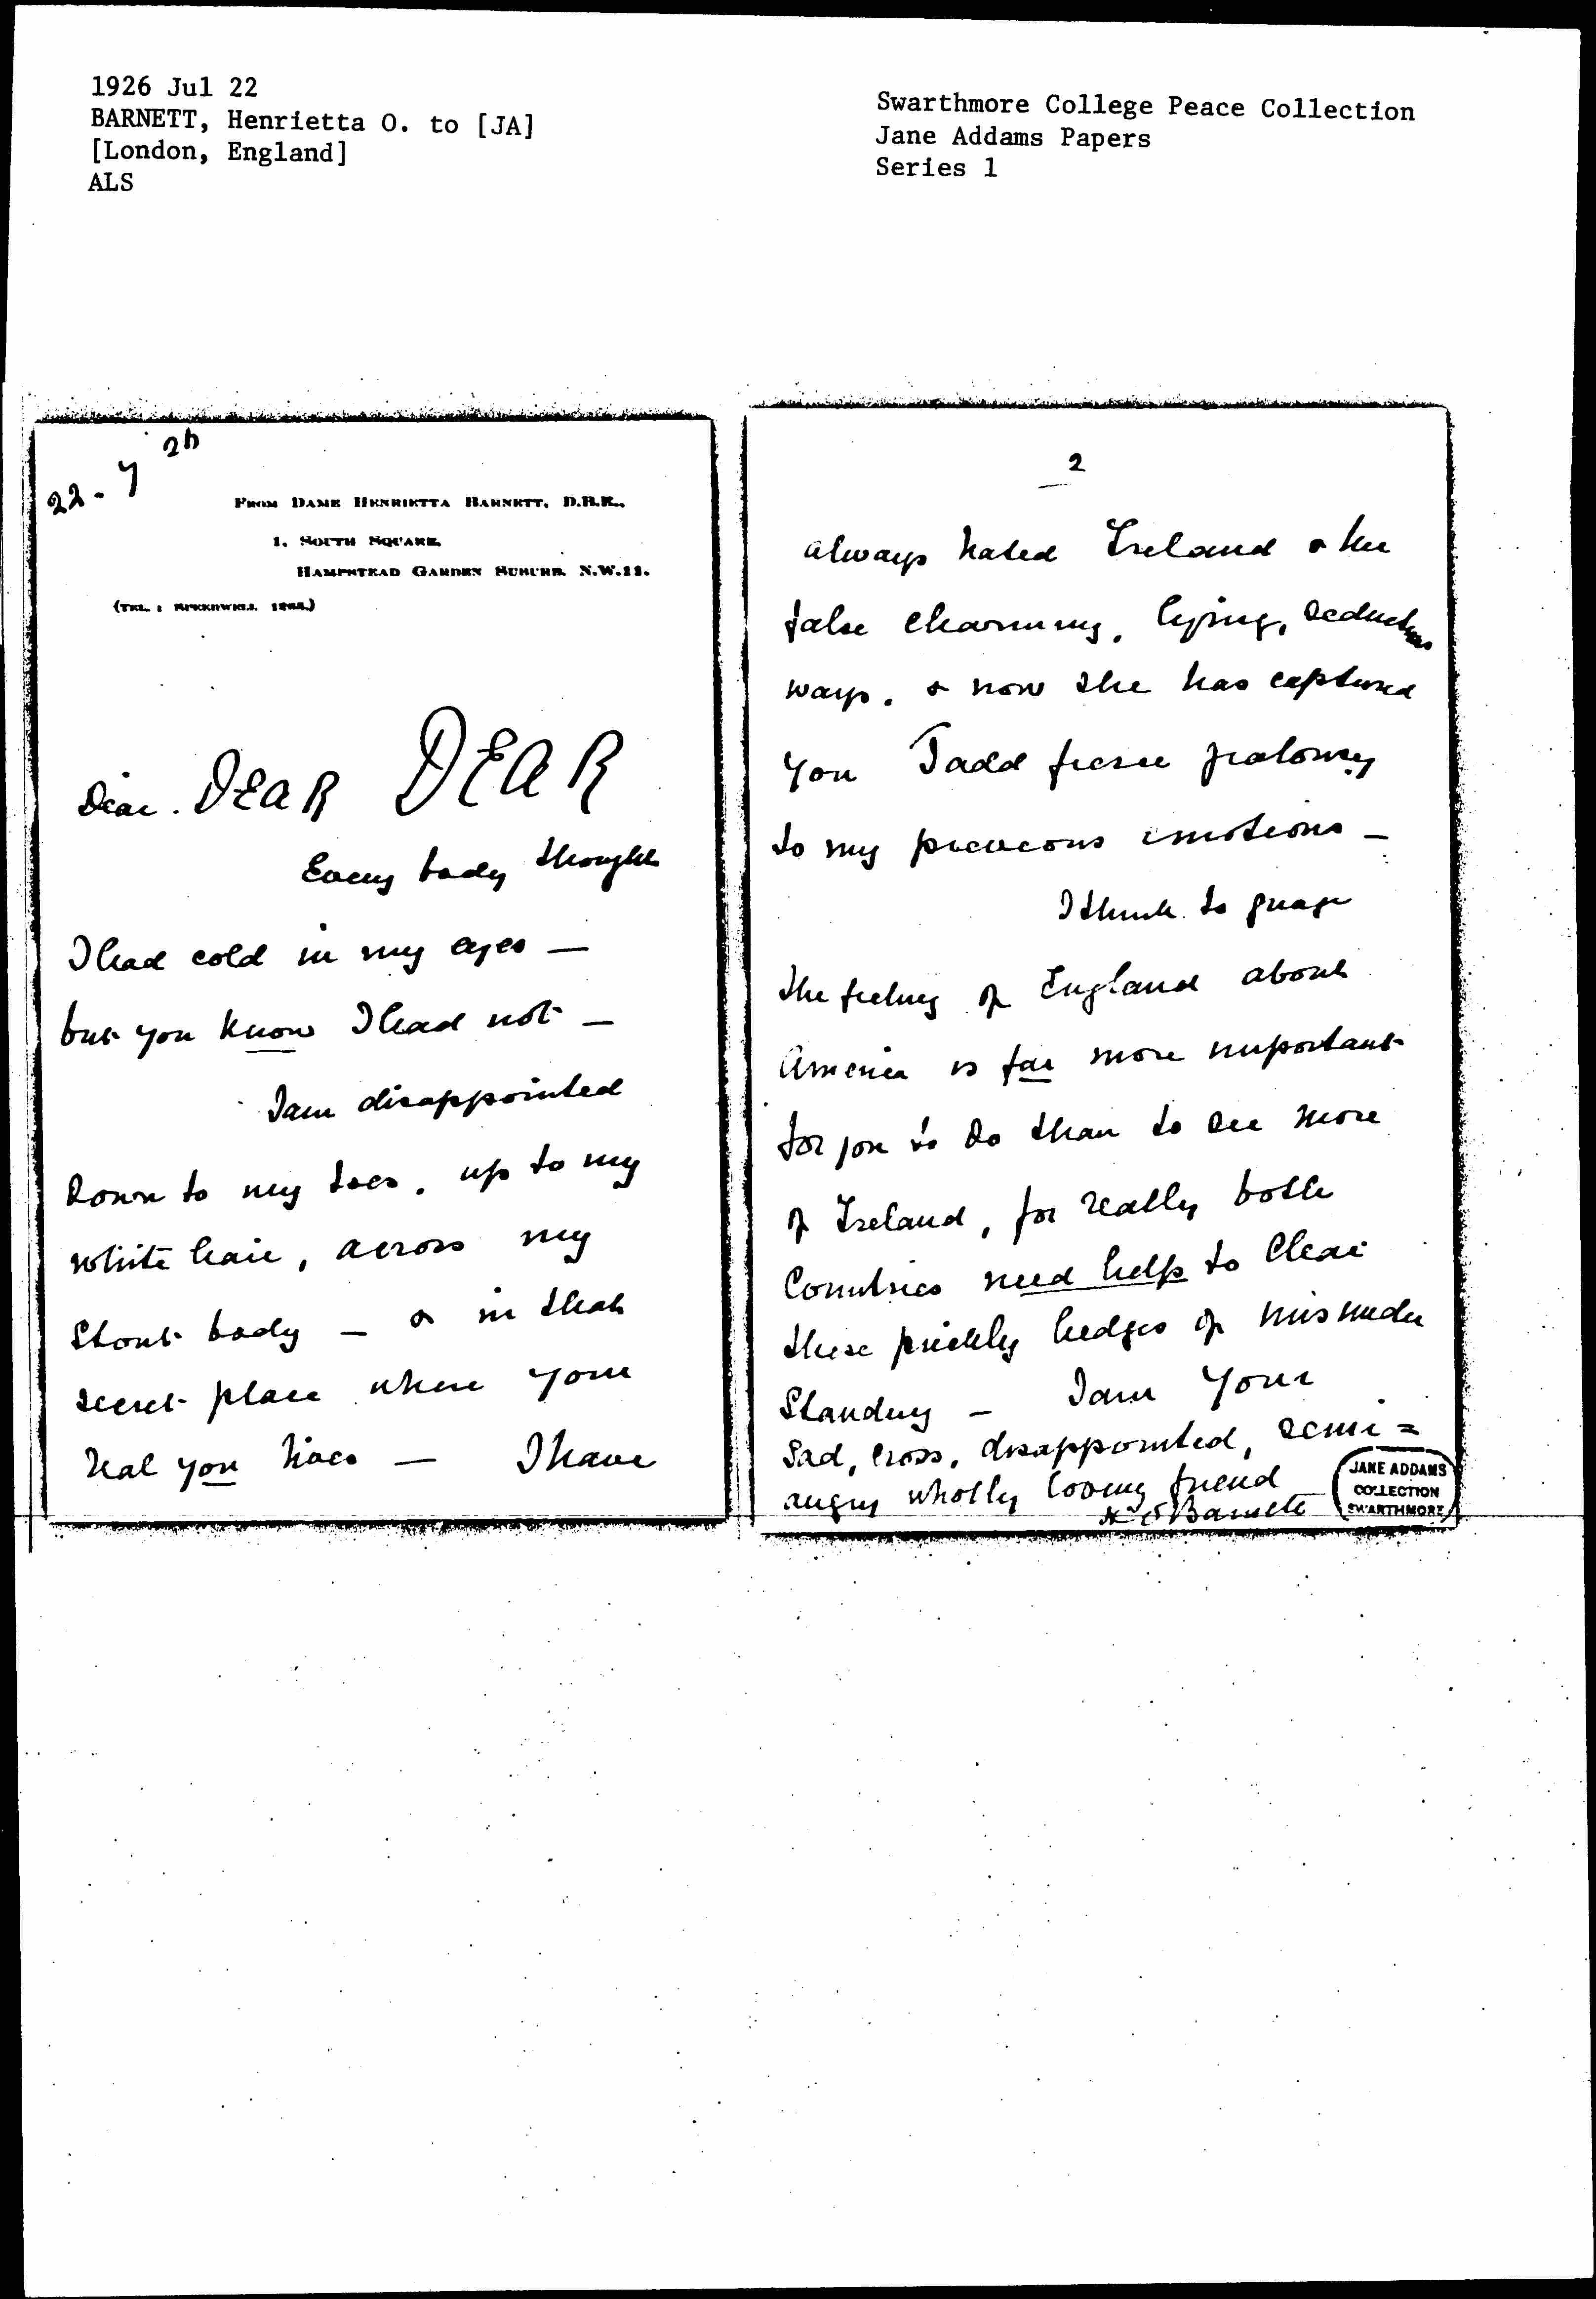 1926 Jul 22
BARNETT, Henrietta O. to [JA]
[London, England]
ALS
Swarthmore College Peace Collection
Jane Addams Papers
Series 1
22-7 26
FROM DAME HENRIETTA BARNETT, D.B.E.,
1, SOUTH SQUARE,
HAMPSTEAD GARDEN SUBURB. N.W.11.
(TEL. : SPEEDWELL
Dear. DEAR DEAR
Every body thought
I had cold in my eyes —
but you know I had not —
I am disappointed
Down to my toes. up to my
white hair, across my
Stout body — & in that
secret place where your
real you lives — I have
2
always hated Ireland & her
false charming, lying,
ways. & now she has captured
you I add fierce jealousy
to my emotions —
I think to guage
the feeling of England about
America is far more important
for you to do than to see more
of Ireland, for really both
Countries need help to Clear
these prickly hedges of misunder
Standing — I am Your
Sad, cross, disappointed, semi =
angry wholly loving friend
H O Barnett
JANE ADDAMS
COLLECTION
SWARTHMORE